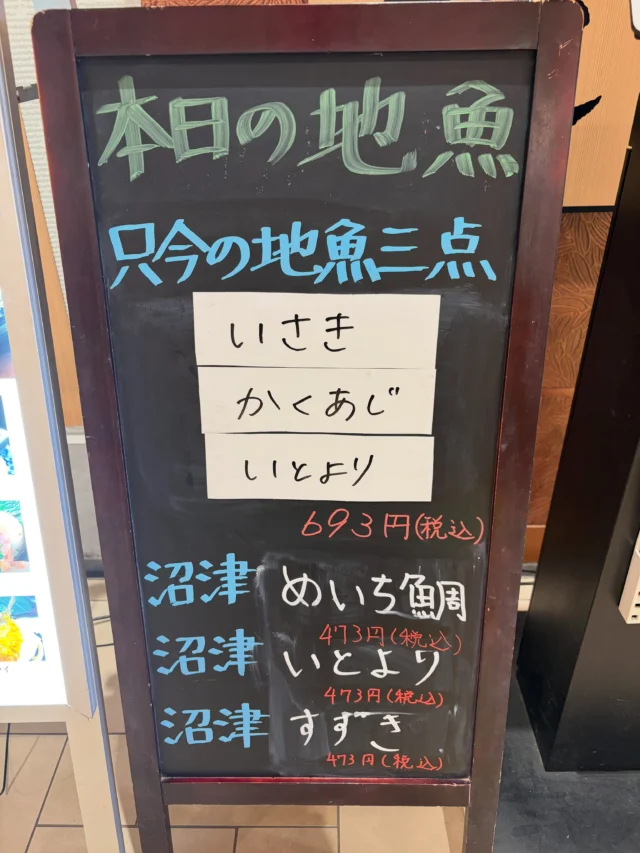 本日の地魚
只今の地魚三点
いさき
かくあじ
いとより
693円(税込)
沼津 めいち鯛
473円(税込)
沼津 いとより
473円(税込)
沼津 すずき
473円(税込)